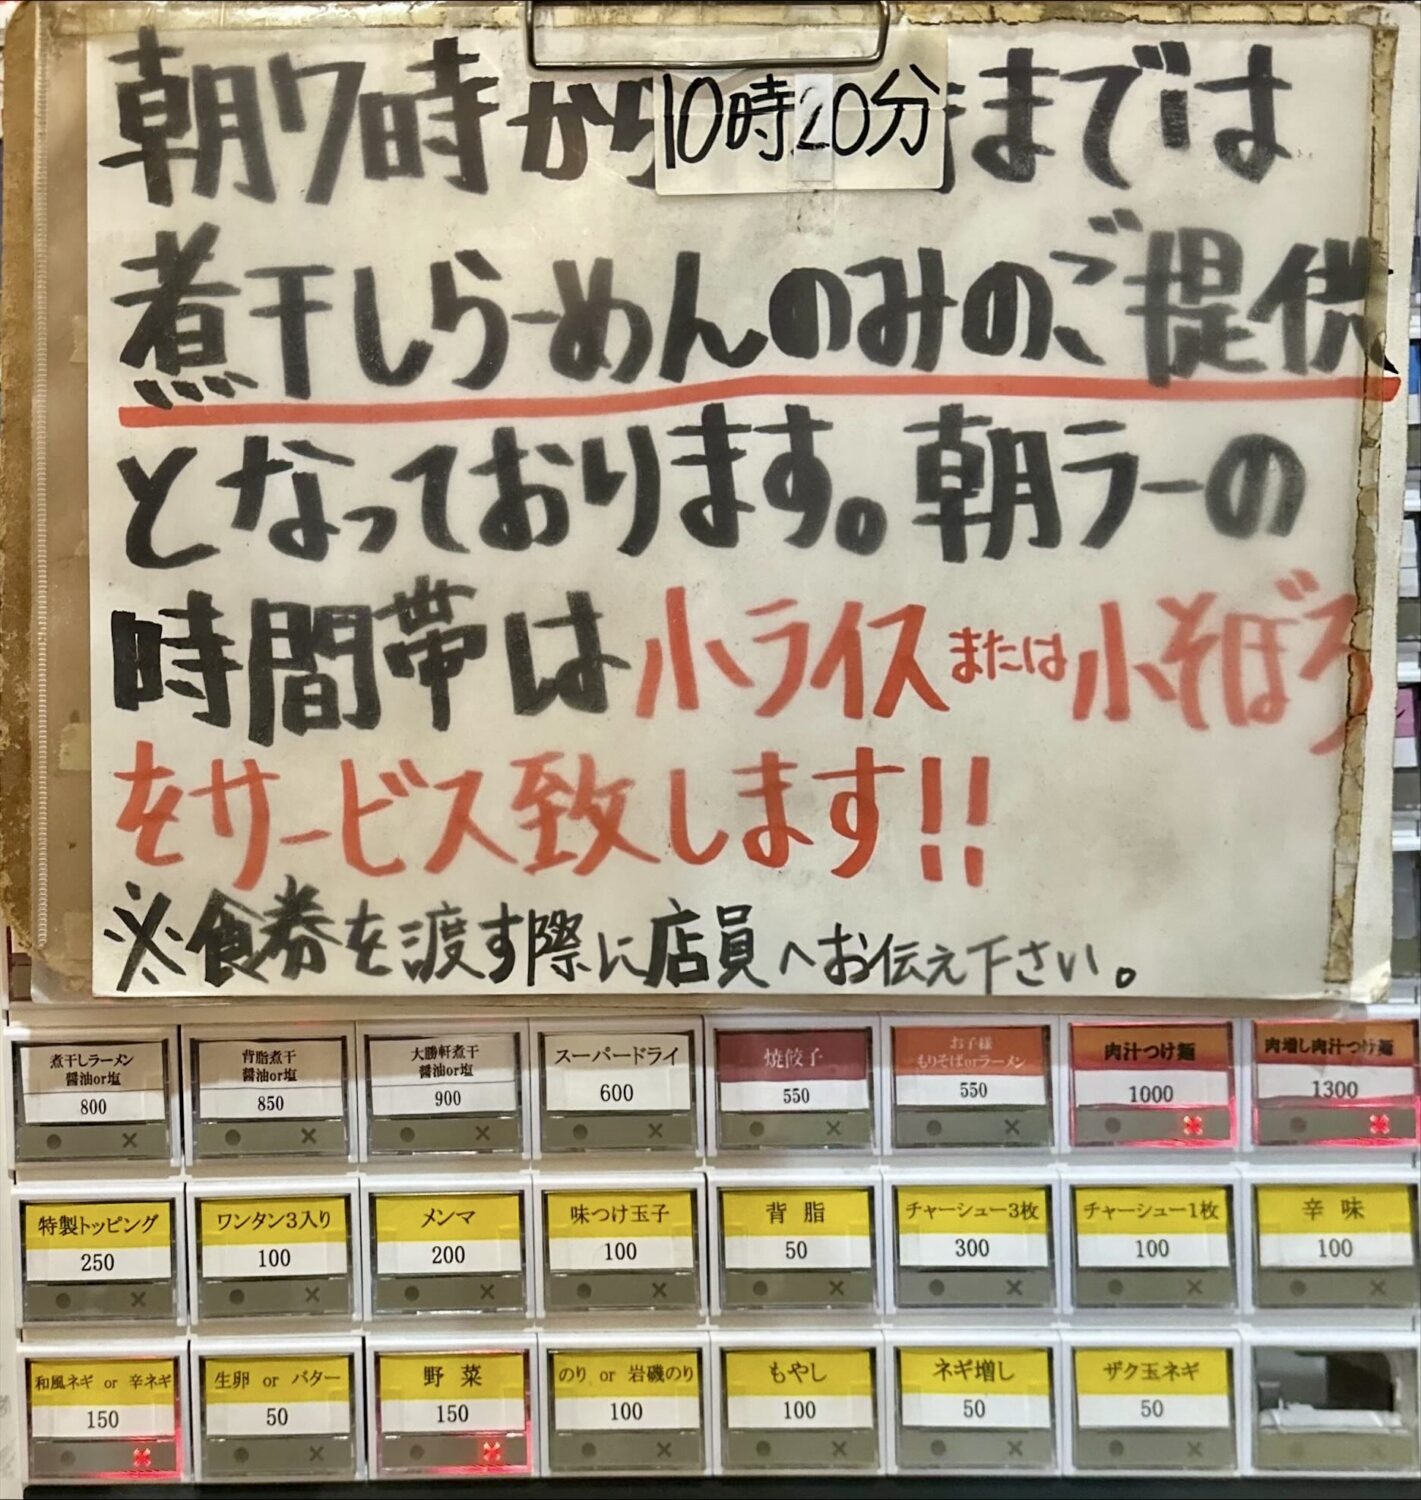 朝7時から10時20分までは
煮干しらーめんのみの、ご提供
となっております。朝ラーの
時間帯は小ライスまたは小そぼろ
をサービス致します!!
※食券を渡す際に店員へお伝え下さい。
煮干しラーメン
醤油or塩
800
背脂煮干
醤油or塩
850
大勝軒煮干
醤油or塩
900
スーパードライ
600
焼餃子
550
お子様
もりそばorラーメン
550
肉汁つけ麺
1000
肉増し肉汁つけ麺
1300
特製トッピング
250
ワンタン3入り
100
メンマ
200
味つけ玉子
100
背脂
50
チャーシュー3枚
300
チャーシュー1枚
100
辛味
100
和風ネギ or 辛ネギ
150
生卵 or バター
50
野菜
150
のり or 岩磯のり
100
もやし
100
ネギ増し
50
ザク玉ネギ
50